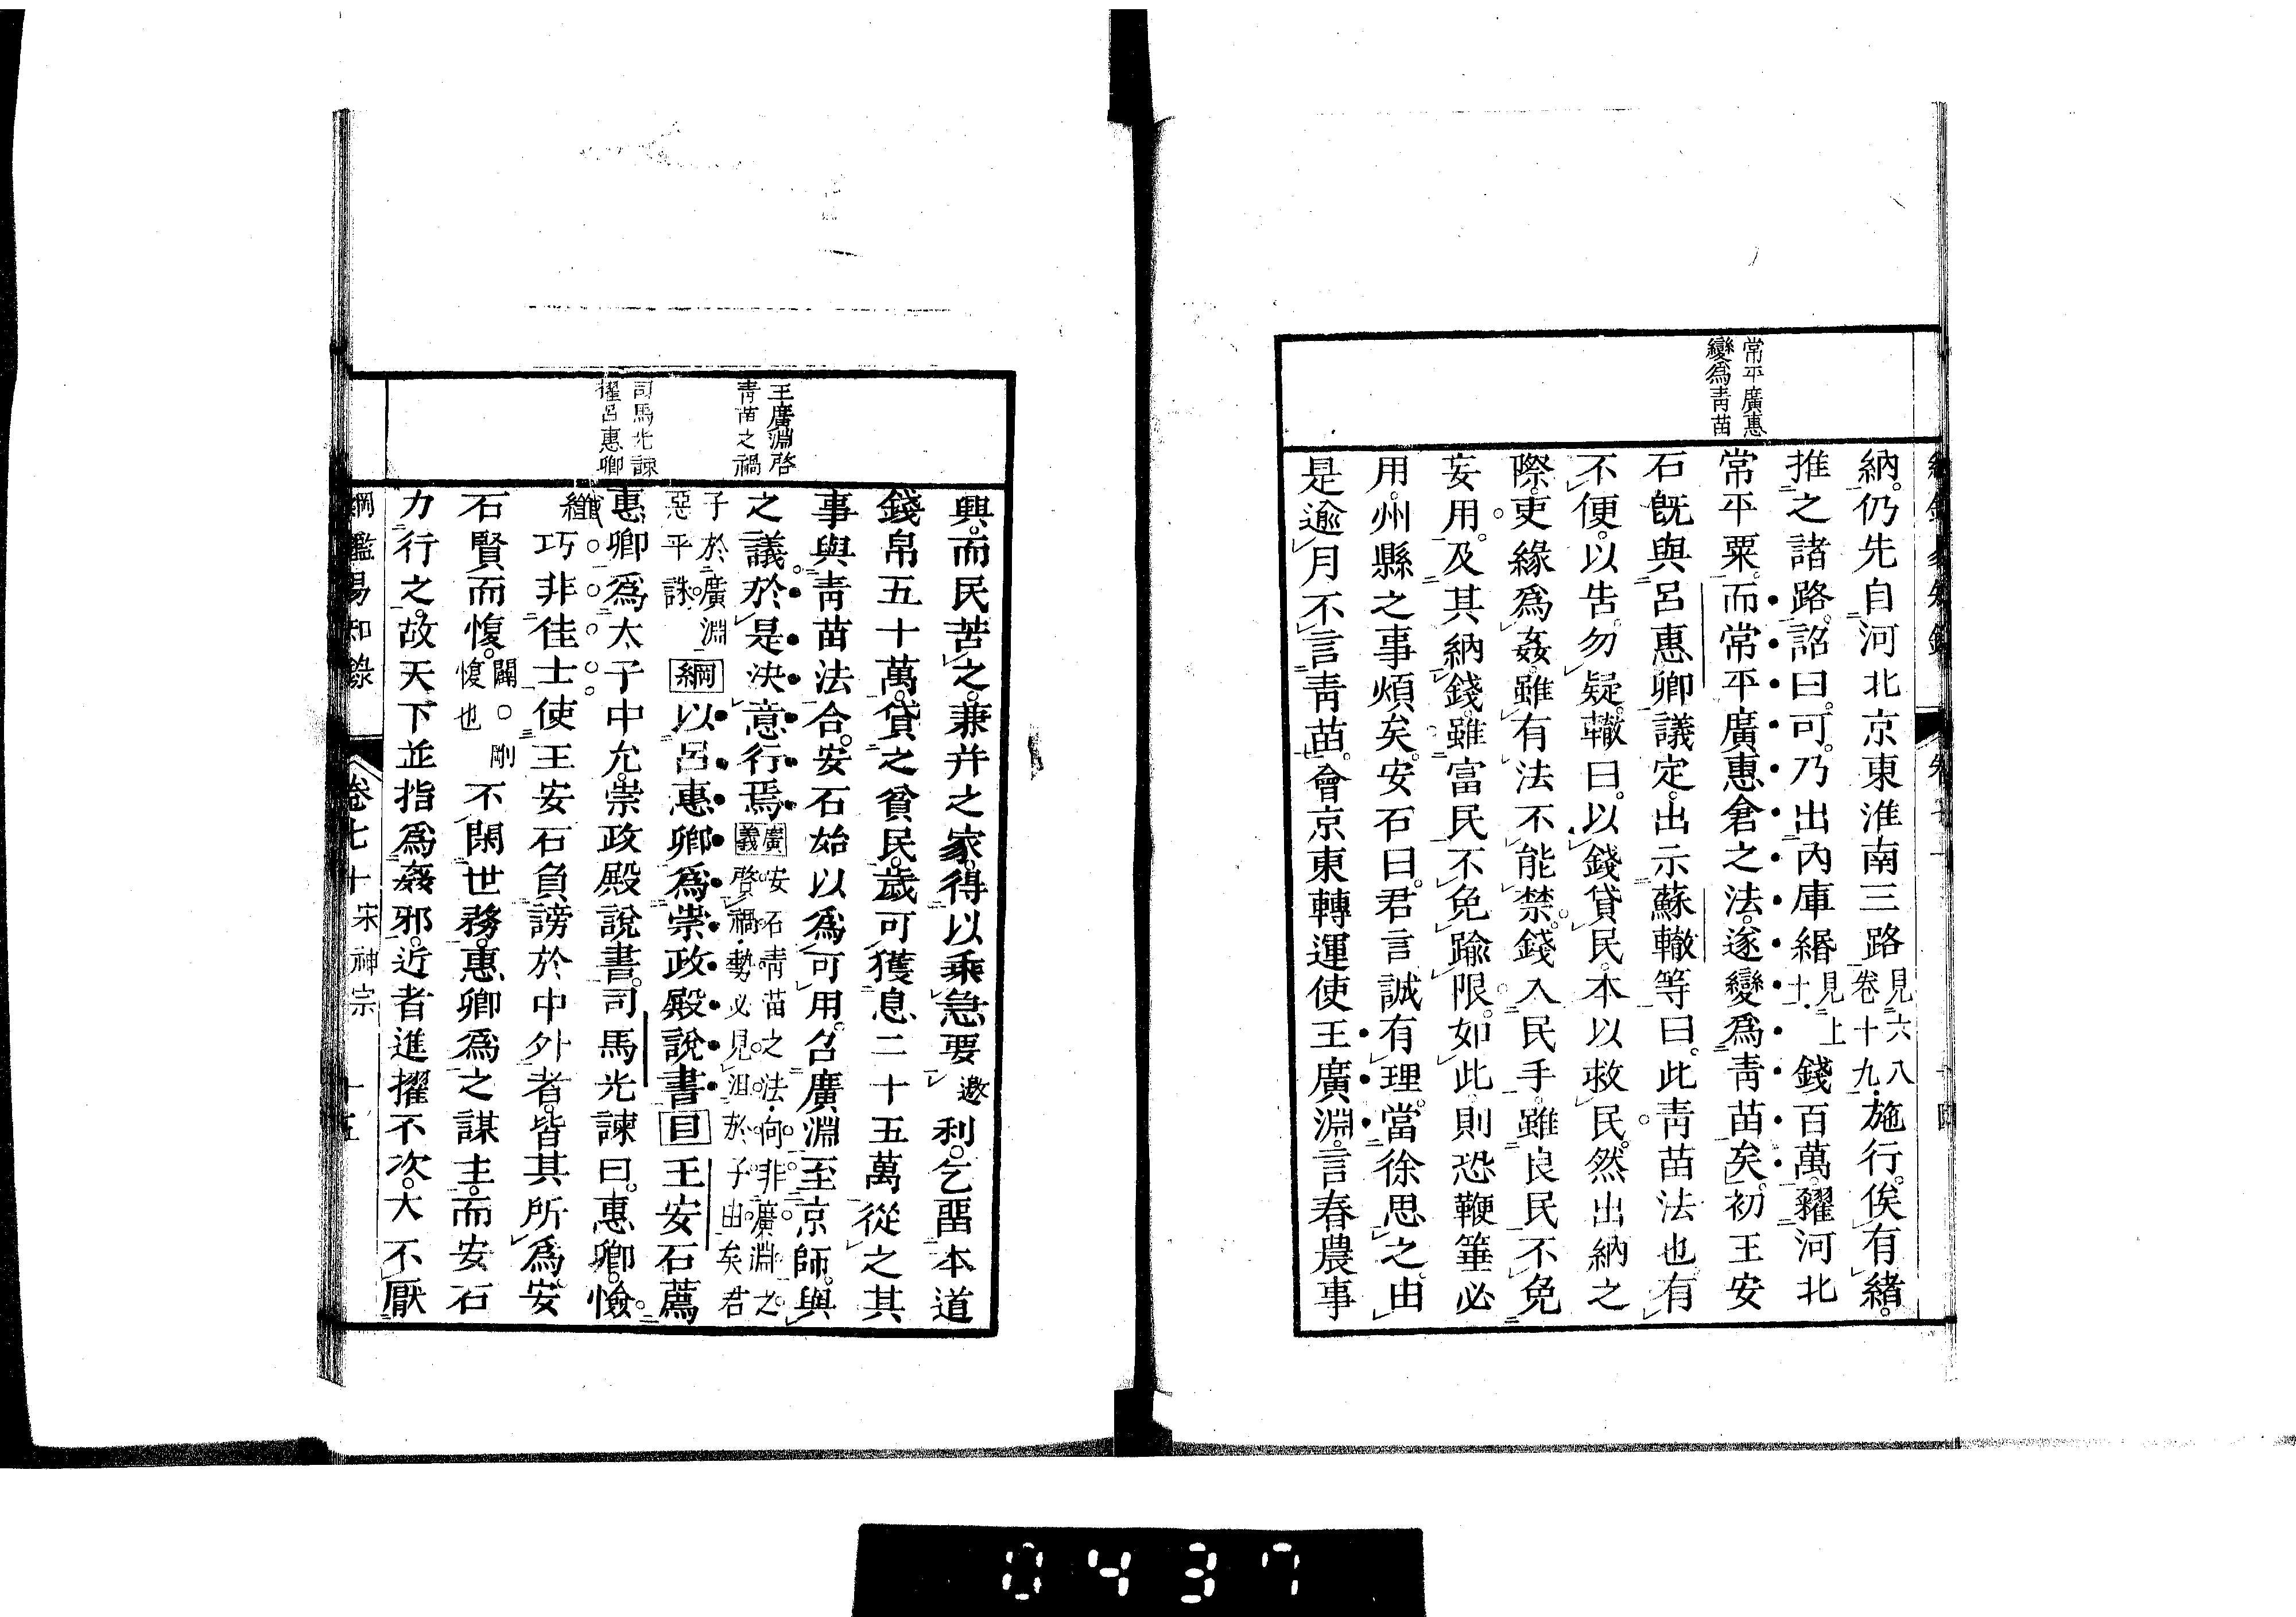 常平廣惠
變爲靑苗
納。仍先自河北京東淮南三路見六八卷十九施行。俟有緒。
推之諸路。詔曰。可。乃出內庫緡見上錢百萬。糴河北
常平粟。而常平廣惠倉之法。遂變爲靑苗矣。初王安
石旣與呂惠卿議定。出示蘇轍等曰。此靑苗法也有
不便。以告勿疑。轍曰。以錢貸民。本以救民。然出納之
際。吏緣爲姦。雖有法不能禁。錢入民手。雖良民不免
妄用。及其納錢。雖富民不免踰限。如此。則恐鞭箠必
用。州縣之事煩矣。安石曰。君言誠有理。當徐思之。由
是逾月不言靑苗。會京東轉運使王廣淵。言春農事
王廣淵啓
靑苗之禍
司馬光諫
擢呂惠卿
興。而民苦之。兼并之家。得以乘急要邀利。乞畱本道
錢帛五十萬。貸之貧民。歲可獲息二十五萬從之其
事與靑苗法合。安石始以爲可用。召廣淵至京師。與
之議。於是決意行焉廣義安石靑苗之法。向非廣淵之啓禍。勢必見沮於子由矣君
子於廣淵惡乎誅。綱以呂惠卿爲崇政殿說書目王安石薦
惠卿爲太子中允。崇政殿說書。司馬光諫曰。惠卿。憸
巧非佳士使王安石負謗於中外者。皆其所爲。安
石賢而愎。剛愎也不閑世務。惠卿爲之謀主。而安石
力行之。故天下並指爲姦邪。近者進擢不次。大不厭
綱鑑易知錄 卷七十 宋神宗 十五
0437